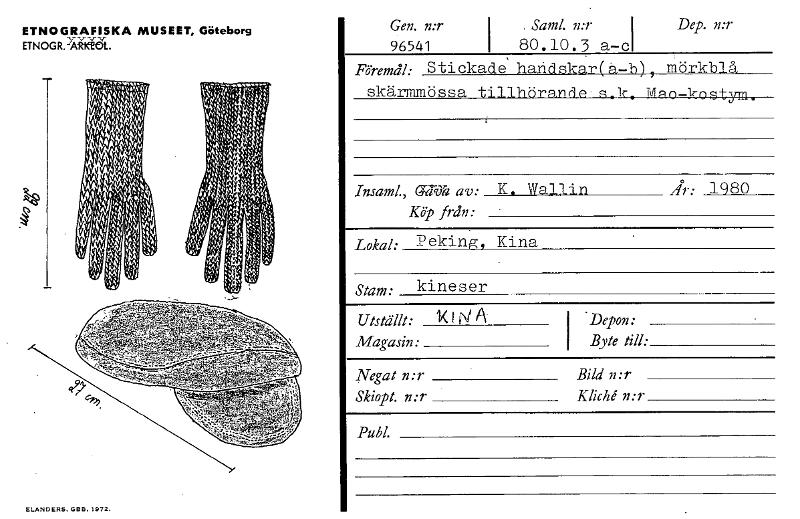 ETNOGRAFISKA MUSEET, Göteborg
ETNOGR. ARKEOL.
Gen. n:r
96541
Saml. n:r
80.10.3 a-c
Dep. n:r
Föremål: Stickade handskar(a-b), mörkblå
skärmmössa tillhörande s.k. Mao-kostym.
Insaml., Gåva av: K. Wallin År: 1980
Köp från:
Lokal: Peking, Kina
Stam: kineser
Utställt: KINA
Depon:
Magasin:
Byte till:
Negat n:r
Bild n:r
Skiopt. n:r
Kliché n:r
Publ.
cm.
27 cm.
ELANDERS, GBB, 1972.